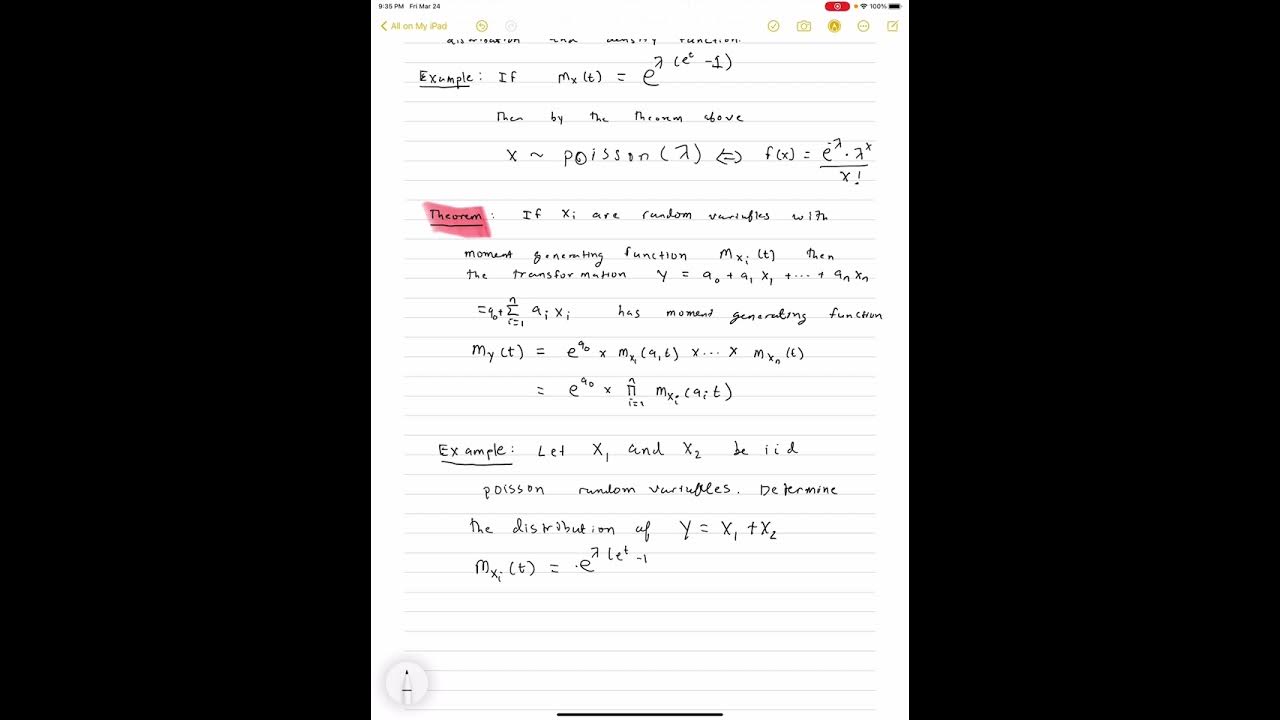 9:35 PM Fri Mar 24
100%
All on My iPad
distribution and density function.
Example: If mx(t) = e^λ(e^t -1)
Then by the theorem above
X ~ poisson(λ) ⇔ f(x) = e^-λ · λ^x / x!
Theorem: If Xi are random variables with
moment generating function Mxi(t) then
the transformation Y = a0 + a1 X1 + ... + an Xn
= a0 + Σ i=1 n ai Xi has moment generating function
My(t) = e^a0 × mx1(a1t) × ... × mxn(t)
= e^a0 × Π i=1 n mxi(ai t)
Example: Let X1 and X2 be iid
poisson random variables. Determine
the distribution of Y = X1 + X2
Mxi(t) = ·e^λ(e^t -1